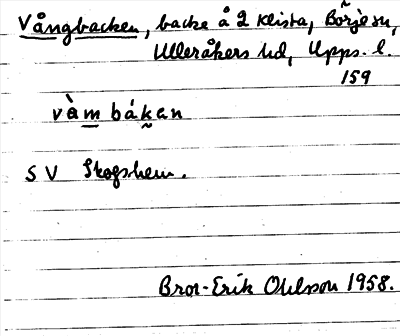 Vångbacken, backe å 2 Klista, Börje sn,
Ulleråkers hd, Upps. l.
159
vàm bákan
SV Skogshem.
Bror-Erik Ohlsson 1958.